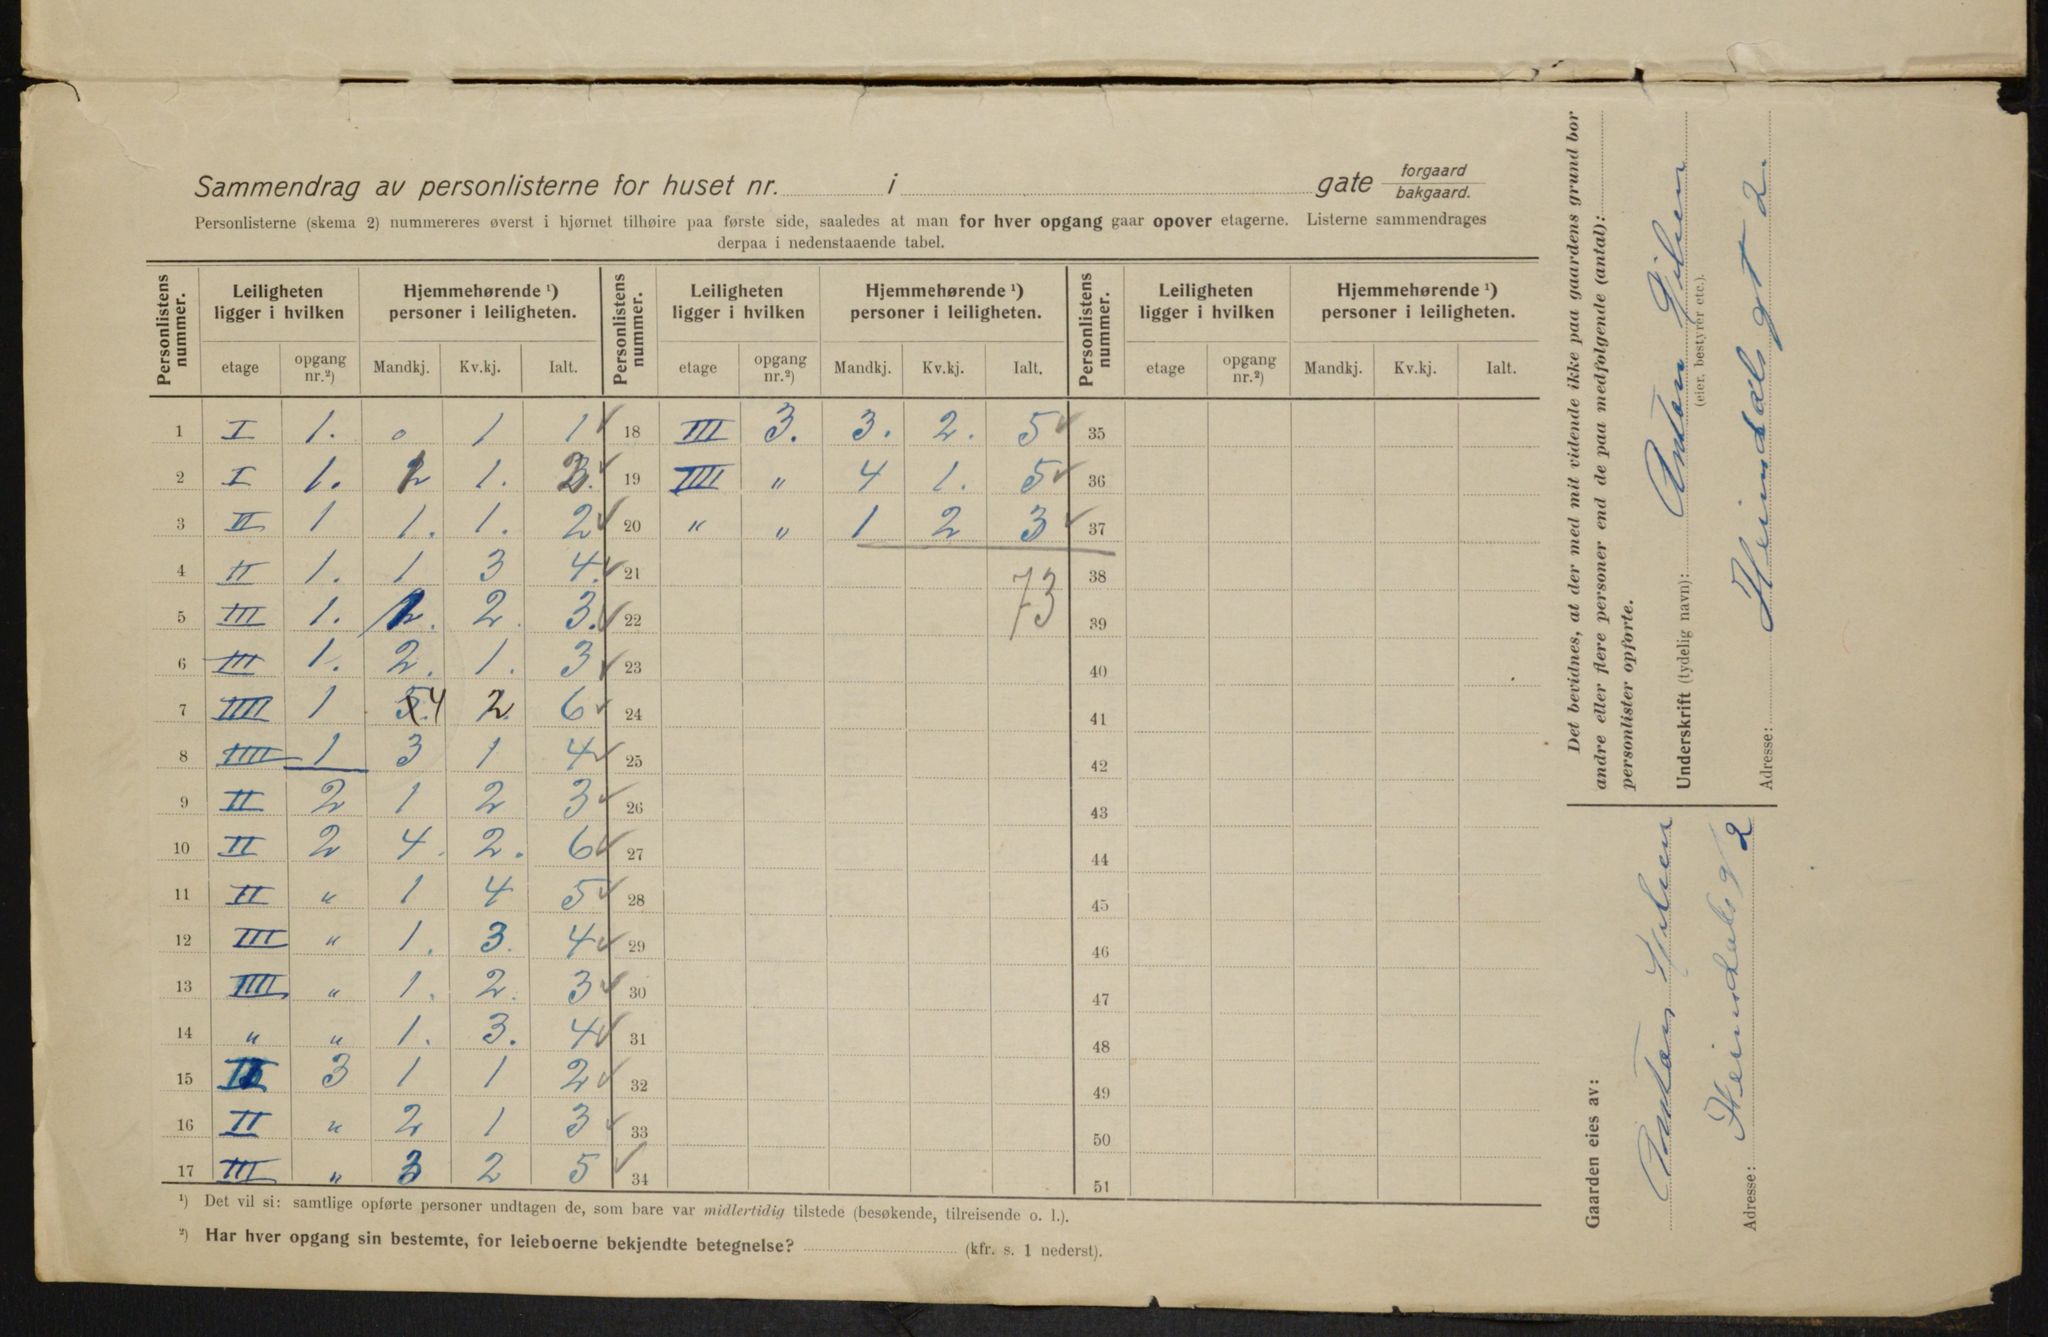 Sammendrag av personlisterne for huset nr. i gate forgaard
bakgaard.
Personlisterne (skema 2) nummereres øverst i hjørnet tilhøire paa første side, saaledes at man for hver opgang gaar opover etagerne. Listerne sammendrages
derpaa i nedenstaaende tabel.
Personlistens nummer. Leiligheten ligger i hvilken Hjemmehørende ¹) personer i leiligheten. Personlistens nummer. Leiligheten ligger i hvilken Hjemmehørende ¹) personer i leiligheten. Personlistens nummer. Leiligheten ligger i hvilken Hjemmehørende ¹) personer i leiligheten.
etage opgang nr.²) Mandkj. Kv.kj. Ialt. etage opgang nr.²) Mandkj. Kv.kj. Ialt. etage opgang nr.²) Mandkj. Kv.kj. Ialt.
1 I 1. 0 1 1 ✓ 18 III 3. 3. 2. 5 ✓ 35
2 I 1. 2 1. 3. ✓ 19 IIII " 4 1. 5 ✓ 36
3 II 1 1. 1. 2 ✓ 20 " " 1 2 3 ✓ 37
4 II 1. 1 3 4. ✓ 21 73 38
5 III 1. 1. 2. 3. ✓ 22 39
6 III 1. 2. 1. 3 ✓ 23 40
7 IIII 1 5. 4 2. 6 ✓ 24 41
8 IIII 1 3 1 4 ✓ 25 42
9 II 2 1 2 3 ✓ 26 43
10 II 2 4. 2. 6 ✓ 27 44
11 II " 1 4 5 ✓ 28 45
12 III " 1. 3. 4 ✓ 29 46
13 IIII " 1. 2. 3 ✓ 30 47
14 " " 1. 3. 4 ✓ 31 48
15 II 3 1 1 2 ✓ 32 49
16 II " 2 1 3 ✓ 33 50
17 III " 3 2 5 ✓ 34 51
¹) Det vil si: samtlige opførte personer undtagen de, som bare var midlertidig tilstede (besøkende, tilreisende o. l.).
²) Har hver opgang sin bestemte, for leieboerne bekjendte betegnelse? (kfr. s. 1 nederst).
Det bevidnes, at der med mit vidende ikke paa gaardens grund bor
andre eller flere personer end de paa medfølgende (antal):
personlister opførte.
Underskrift (tydelig navn): Anton Gilsen
(eier, bestyrer etc.).
Adresse: Heimdalsgt 2.
Gaarden eies av:
Anton Gilsen
Adresse: Heimdalsgt 2